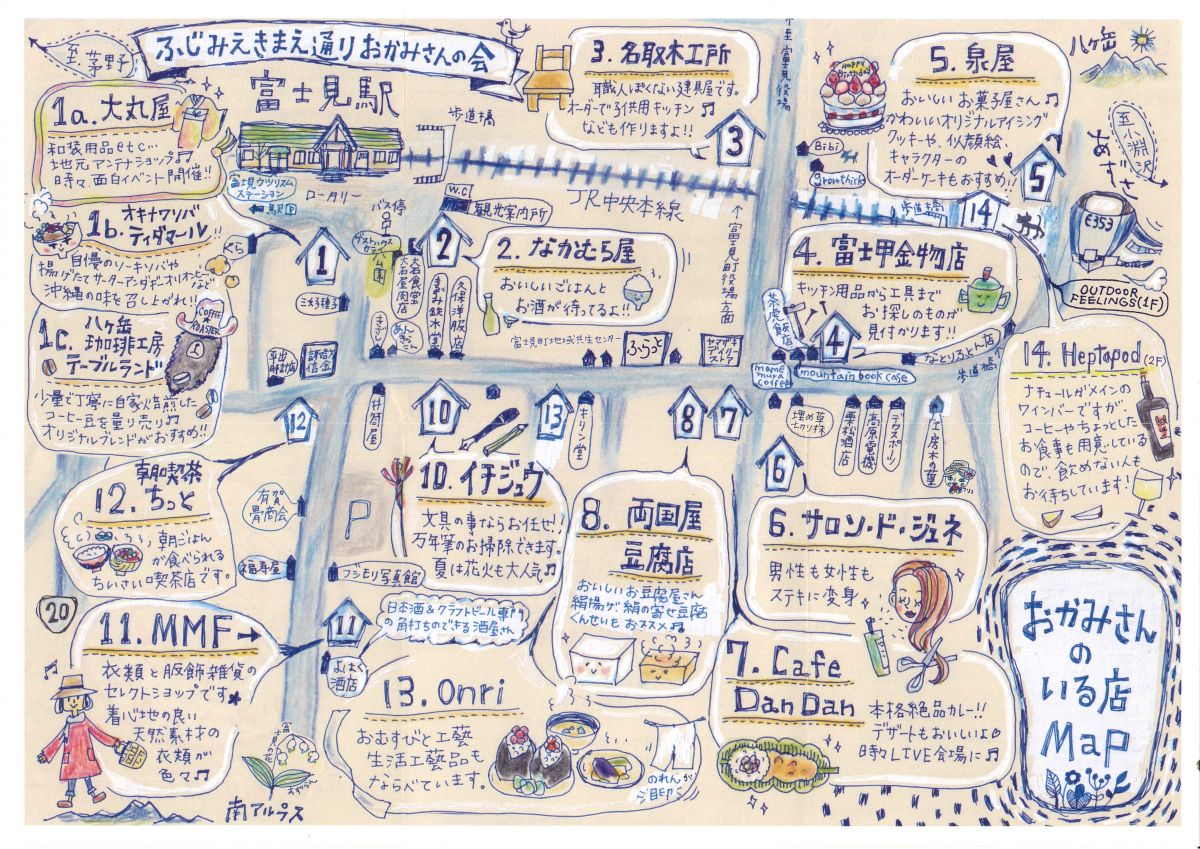 至茅野
ふじみえきまえ通りおかみさんの会
富士見駅
歩道橋
1a. 大丸屋
和装用品etc…
地元アンテナショップ♫
時々面白イベント開催!!
富士見ツーリズム
ステーション
←駅圧
ロータリー
バス停
W.C
観光案内所
JR中央本線
3. 名取木工所
職人ぽくない建具屋です。
オーダーで子供用キッチン♫
なども作りますよ!!
3
至富士見役場
5. 泉屋
Happy
Birthday
おいしいお菓子屋さん♫
かわいいオリジナルアイシング
クッキーや、似顔絵、
キャラクターの
オーダーケーキもおすすめ!!
5
八ヶ岳
至小淵沢
あずさ
E353
Bibi
growthick
歩道橋
14
OUTDOOR
FEELINGS(1F)
1b. オキナワソバ
ティダマール
自慢のソーキソバや
揚げたてサーターアンダギーオリオンビールなど
沖縄の味を召し上がれ!!
1
公園
2
2. なかむら屋
おいしいごはんと
お酒が待ってるよ!!
↑富士見町役場方面
4. 富士甲金物店
キッチン用品から工具まで
お探しのものが
見付かります!!
4
茶虎飯店
なとりふとん店
歩道橋
1c. 八ヶ岳
珈琲工房
テーブルランド
COFFEE
ROASTER
少量で丁寧に自家焙煎した
コーヒー豆を量り売り♫
オリジナルブレンドがおすすめ!!
大石食堂
大石屋肉店
まるみ鉄木堂
久保洋服店
富士見町地域共生センター
ふらっと
ヤマザキ
デイリー
ストア
mame
mura
coffee
mountain book case
14. Heptapod (2F)
ナチュールがメインの
ワインバーですが、
コーヒーやちょっとした
お食事も用意している
ので、飲めない人も
お待ちしています!
12
井筒屋
10
13
キリン堂
8
7
6
栗松酒店
高原電機
テラスポーツ
工房木の葉
12. 朝喫茶
ちっと
朝ごはん
が食べられる
ちいさい喫茶店です。
有賀
青商会
福寿屋
P
フジモリ写真館
10. イチジュウ
文具の事ならお任せ!!
万年筆のお掃除できます。
夏は花火も大人気♫
8. 両国屋
豆腐店
おいしいお豆腐屋さん
絹揚げ 絹の寄せ豆腐
くんせいもおススメ♫
6. サロン・ド・ジュネ
男性も女性も
ステキに変身
20
11. MMF→
衣類と服飾雑貨の
セレクトショップです✱
着心地の良い
天然素材の
衣類が
色々♫
11
日本酒&クラフトビール専門
の角打ちのできる酒屋さん
よはく
酒店
13. Onri
おむすびと工藝
生活工藝品も
ならべています。
のれんが
目印
7. Cafe
Dan Dan
本格絶品カレー!!
デザートもおいしいよ
時々LIVE会場に♫
おかみさん
の
いる店
Map
すずらん
南アルプス